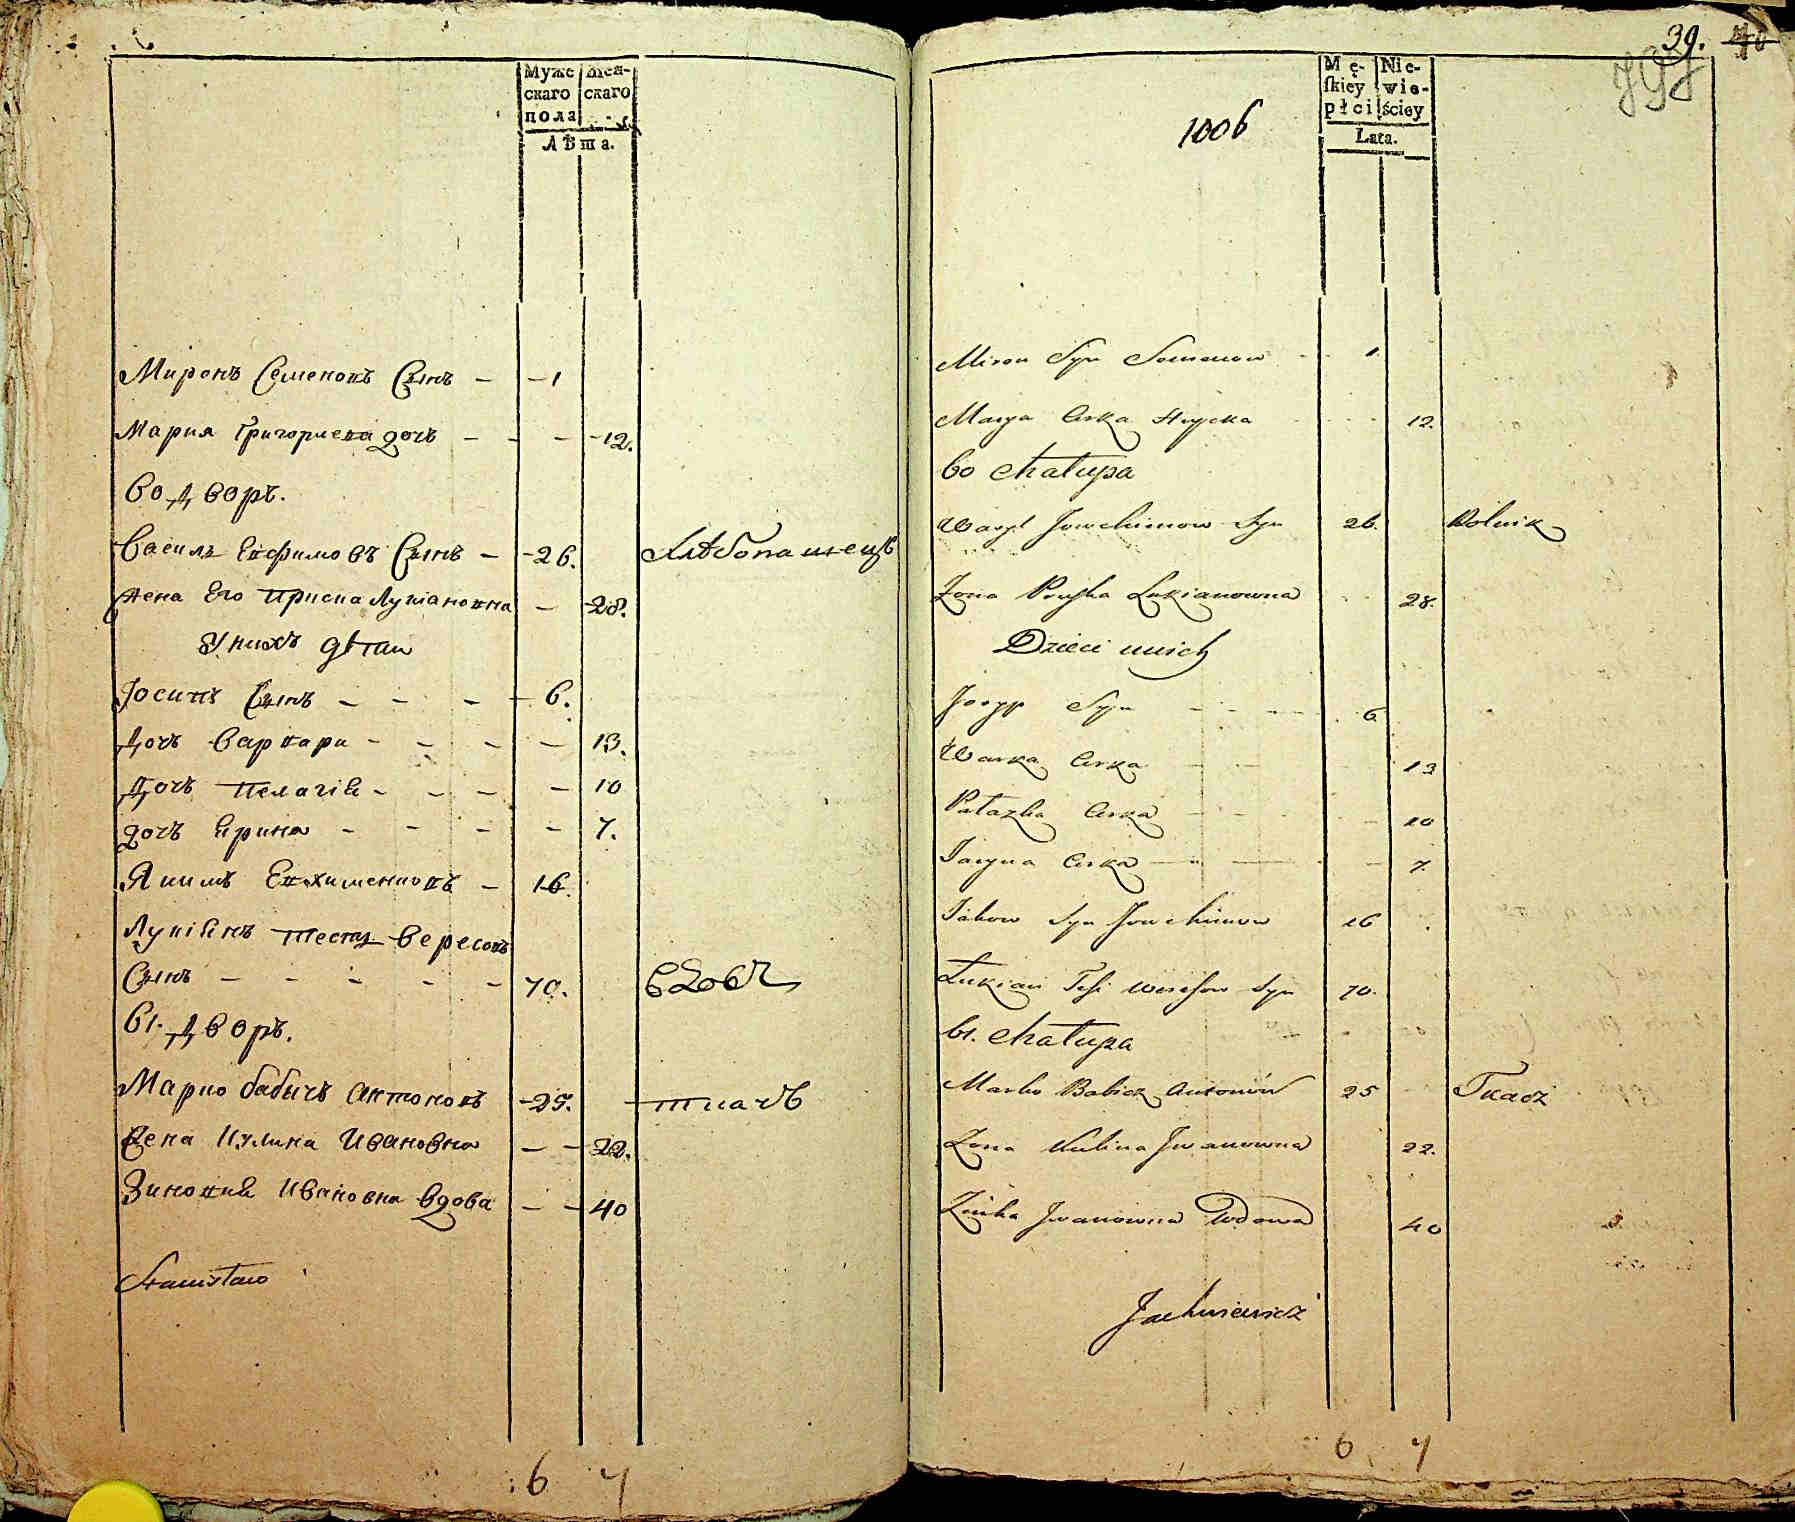 Муже
скаго
пола
Жен-
скаго
Лѣта.
Миронъ Семеновъ Сынъ - - 1
Мария Григориева дочъ - - - 12.
60 Дворъ.
Василь Евфимовъ Сынъ - - 26. Хлѣбопашецъ
Жена Его Приска Лукіановна - 28.
У нихъ дѣти
Іосипъ Сынъ - - - - 6.
Дочъ Варвара - - - - 13.
Дочъ Пелагія - - - - 10
дочъ Ирина - - - - 7.
Якимъ Евхименковъ - 16.
Лукіянъ тесть Вересовъ
Сынъ - - - - - 70. вдовъ
61. Дворъ.
Марко бабичъ Антоновъ - 25. ткачъ
Жена Кулина Ивановна - - 22.
Зиновия Ивановна вдова - - 40
Stanisław
6 7
39. 40
1006
Mę-
skiey
płci
Nie-
wie-
ściey
Lata.
Miron Syn Semenow - - 1
Marya Corka Hrycka - - - 12.
60 Chałupa
Wasyl Jowchimow Syn 26. Rolnik
Żona Pryska Lukianowna - - 28.
Dzieci u nich
Jozyp Syn - - - 6
Warka Corka - - - 13
Pałazka Corka - - - 10
Jaryna Corka - - - 7.
Jakow Syn Jowchimow 16
Łukian Teść Weresow Syn 70.
61. Chałupa
Marko Babicz Antonów 25 Tkacz
Żona Kulina Jwanowna 22.
Zinka Jwanowna Wdowa 40
Jachniewicz
6 7